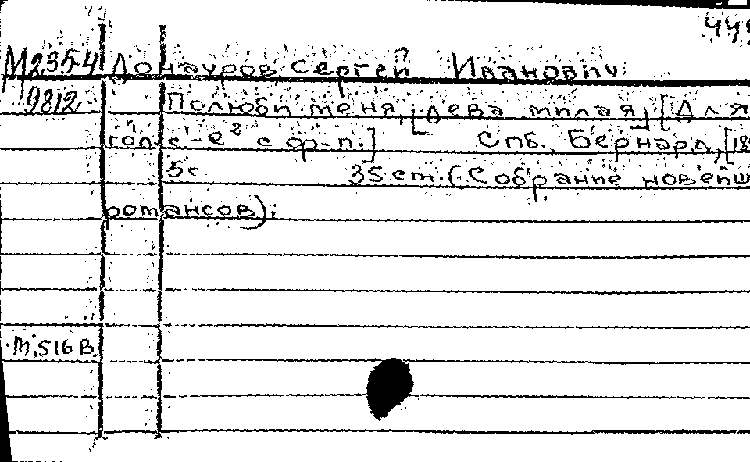 449
М235-4 Донауров Сергей Иванович.
9812. Полюби меня, [дева милая] [Для
гол. c-e² с ф-п.] Спб., Бернард, [18
5с 35 ст. (Собрание новейш
романсов).
М.516 В.